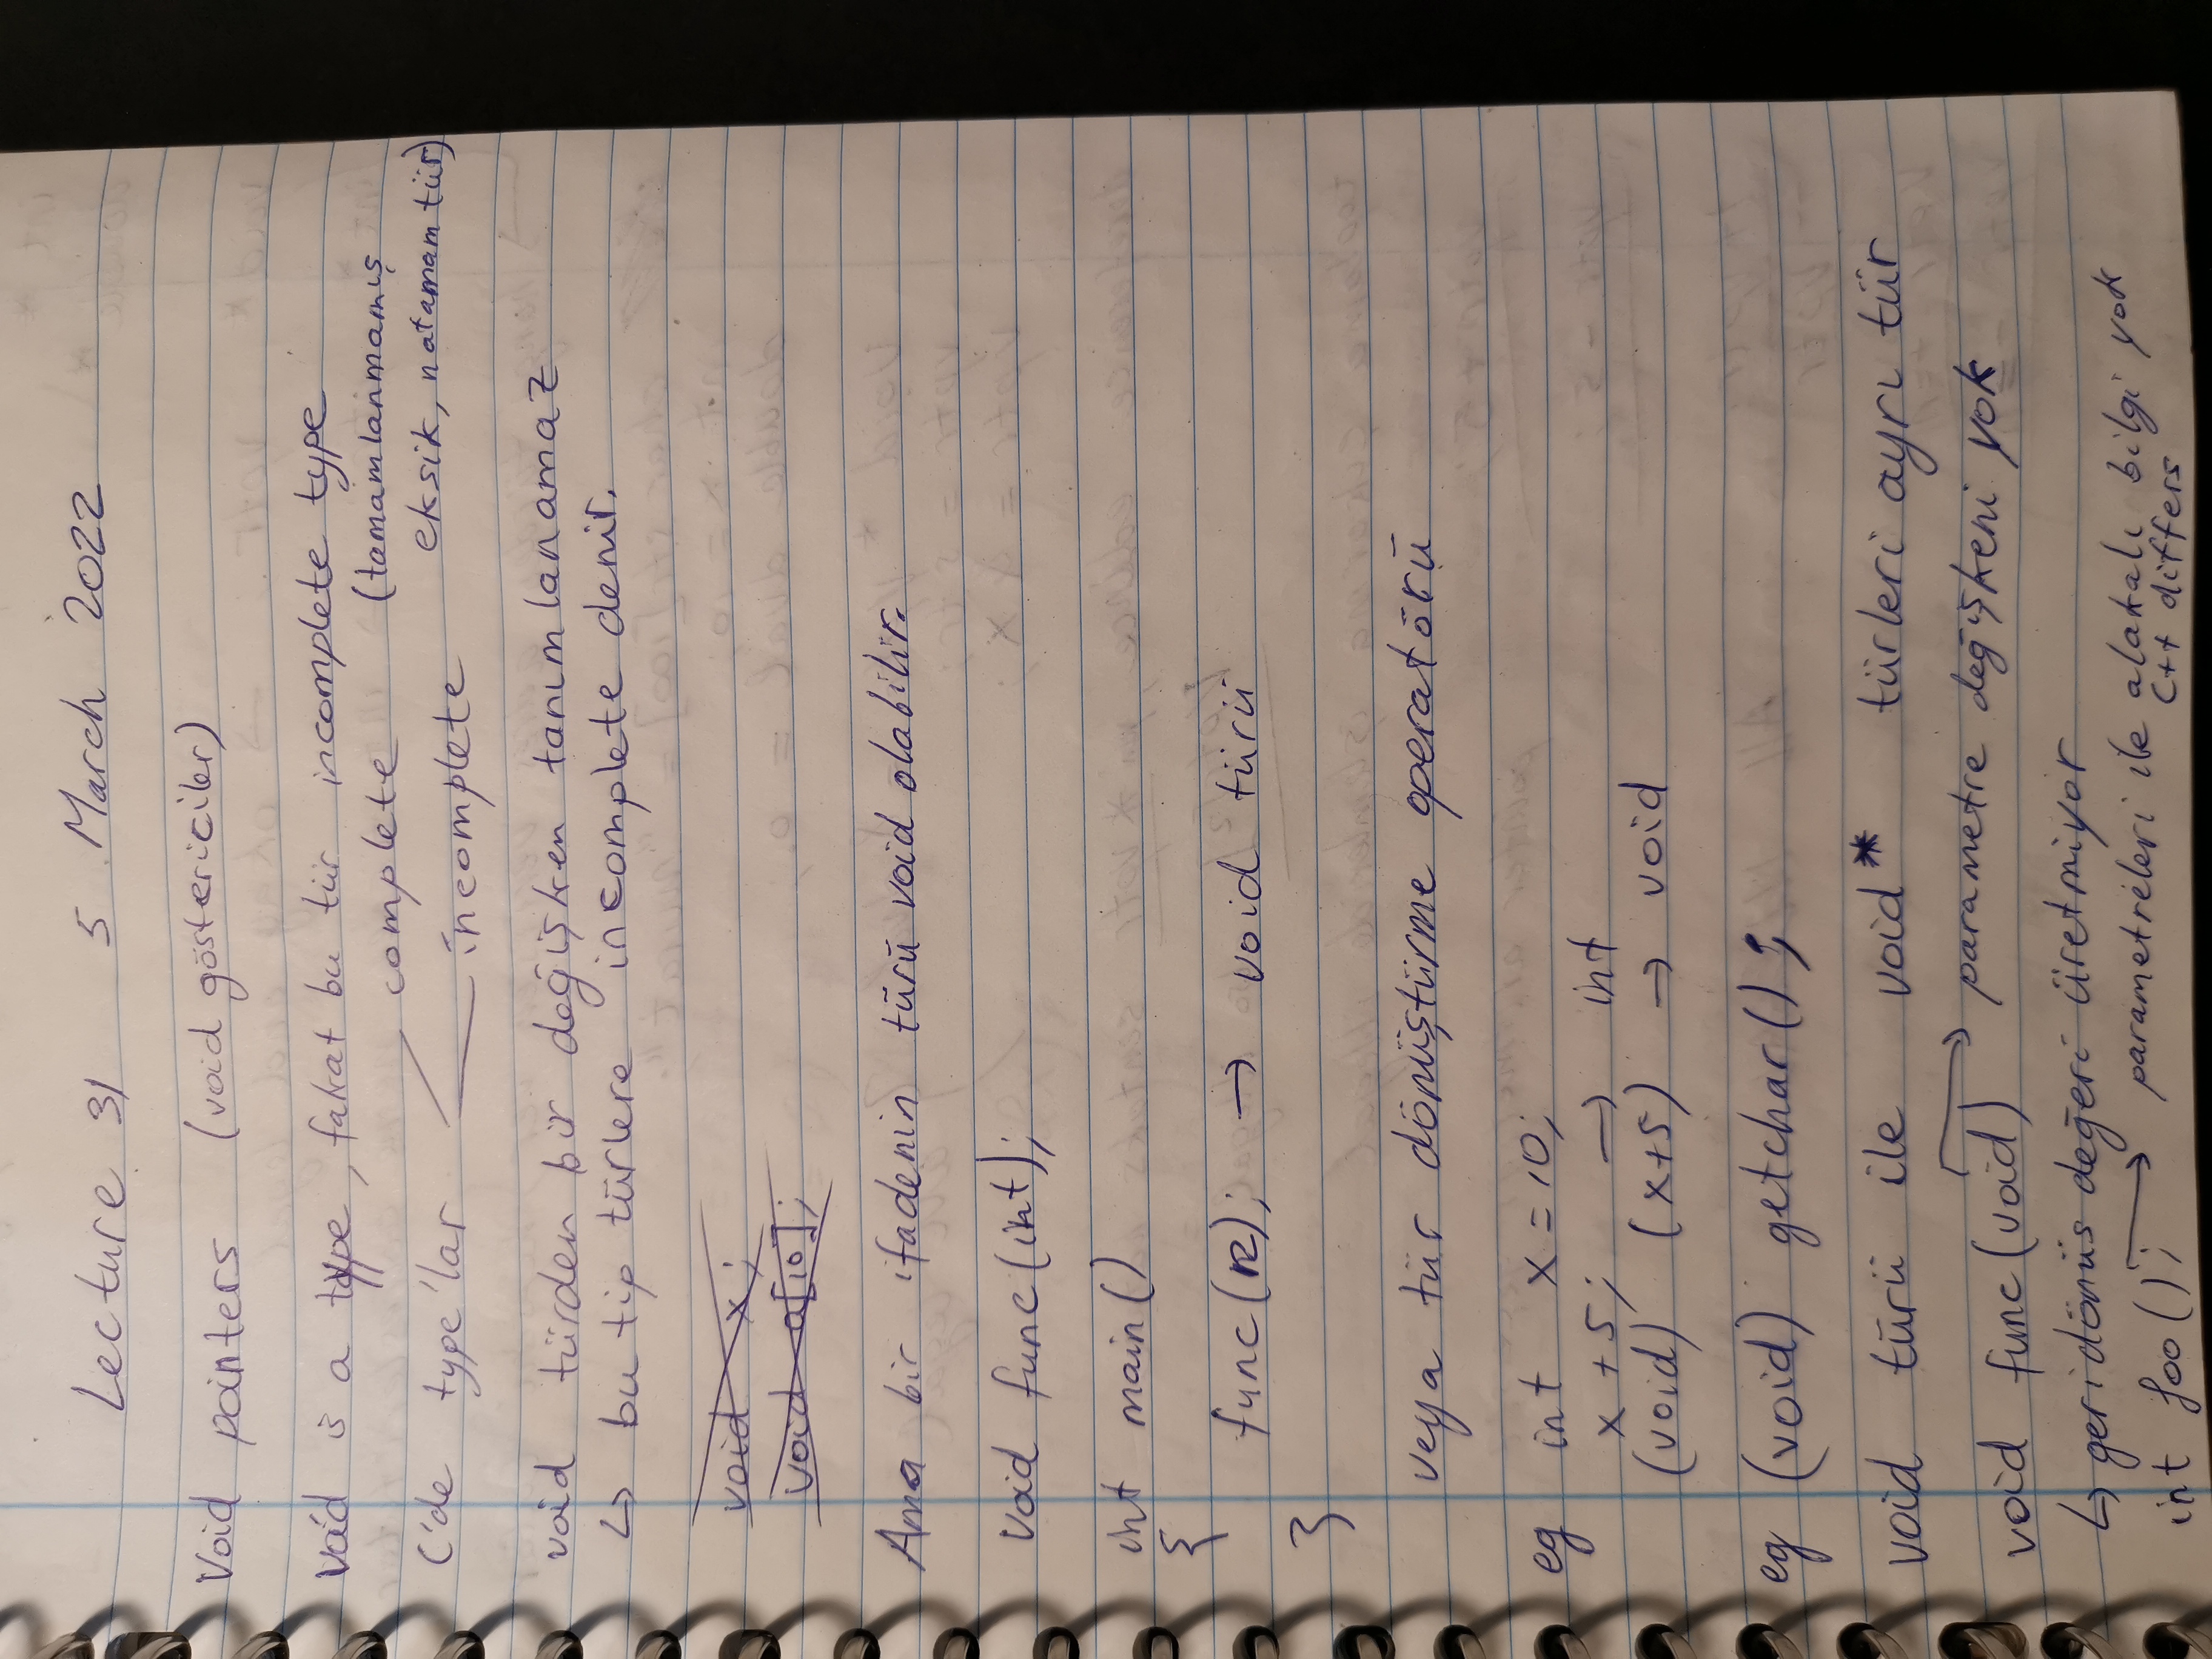 Lecture 31 5 March 2022
Void pointers (void göstericiler)
void is a type, fakat bu tür incomplete type
complete (tamamlanmamış
C'de type'lar eksik, natamam tür)
incomplete
void türden bir değişken tanımlanamaz
↳ bu tip türlere incomplete denir.
void x;
void a[10];
Ama bir ifadenin türü void olabilir.
void func(int);
int main()
{
func(12); → void türü
}
veya tür dönüştürme operatörü
eg int x = 10;
x + 5; → int
(void) (x+5) → void
eg (void) getchar();
void türü ile void* türleri ayrı tür
void func(void) → parametre değişkeni yok
↳ geridönüs değeri üretmiyor
int foo(); → parametreleri ile alakalı bilgi yok
C++ differs